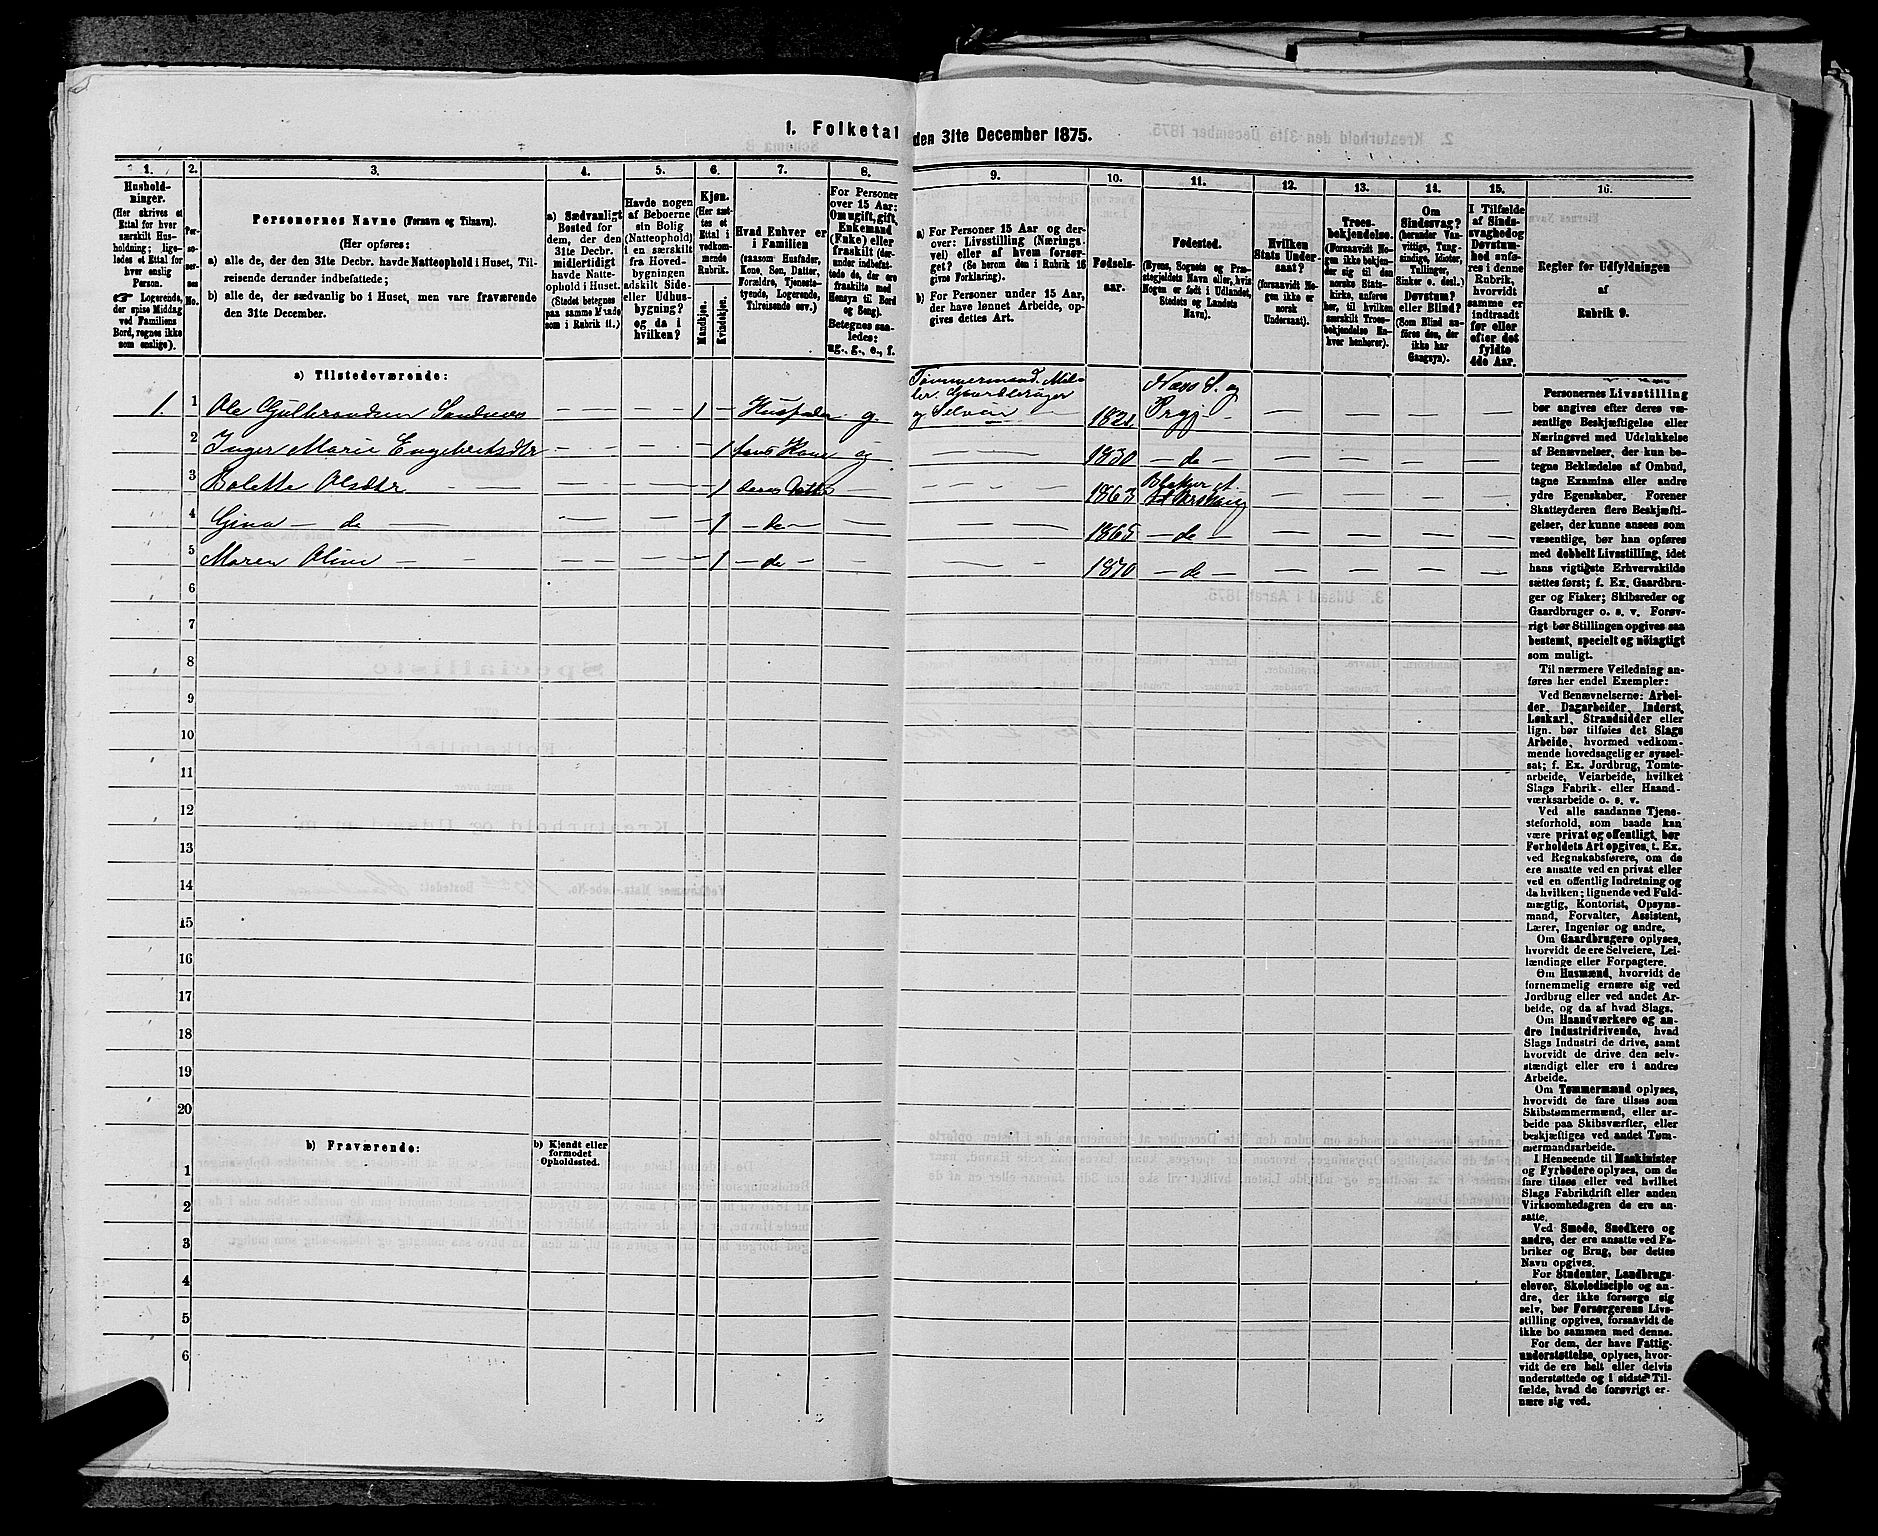 1. Folketal den 31te December 1875.
1. 2. 3. 4. 5. 6. 7. 8. 9. 10. 11. 12. 13. 14. 15. 16.
Hushold-
ninger.
(Her skrives et
Ettal for hver
særskilt Hus-
holdning; lige-
ledes et Ettal for
hver enslig
Person.
☞ Logerende,
der spise Middag
ved Familiens
Bord, regnes ikke
som enslige).
Per-
so-
ner-
nes
No.
Personernes Navne (Fornavn og Tilnavn).
(Her opføres:
a) alle de, der den 31te Decbr. havde Natteophold i Huset, Til-
reisende derunder indbefattede;
b) alle de, der sædvanlig bo i Huset, men vare fraværende
den 31te December.
a) Sædvanligt
Bosted for
dem, der den
31te Decbr.
midlertidigt
havde Natte-
ophold i Huset.
(Stedet betegnes
paa samme Maade
som i Rubrik 11.)
Havde nogen
af Beboerne
sin Bolig
(Natteophold)
i en særskilt
fra Hoved-
bygningen
adskilt Side-
eller Udhus-
bygning?
og da i
hvilken?
Kjøn.
(Her sæt-
tes et
Ettal i
vedkom-
mende
Rubrik.
Mandkjøn.
Kvindekjøn.
Hvad Enhver er
i Familien
(saasom Husfader,
Kone, Søn, Datter,
Forældre, Tjeneste-
tyende, Logerende,
Tilreisende osv.)
For Personer
over 15 Aar:
Om ugift, gift,
Enkemand
(Enke) eller
fraskilt (der-
under indbefat-
tede de, der ere
fraskilte med
Hensyn til Bord
og Seng).
Betegnes saa-
ledes:
ug., g., e., f.
a) For Personer 15 Aar og der-
over: Livsstilling (Nærings-
vei) eller af hvem forsør-
get? (Se herom den i Rubrik 16
givne Forklaring).
b) For Personer under 15 Aar,
der have lønnet Arbeide, op-
gives dettes Art.
Fødsels-
aar.
Fødested.
(Byens, Sognets og Præ-
stegjeldets Navn eller, hvis
Nogen er født i Udlandet,
Stedets og Landets
Navn).
Hvilken
Stats Under-
saat?
(forsaavidt No-
gen ikke er
norsk
Undersaat).
Troes-
bekjendelse.
(Forsaavidt No-
gen ikke bekjen-
der sig til den
norske Stats-
kirke, anføres
her, til hvilken
særskilt Troes-
bekjendelse En-
hver henhører).
Om
Sindssvag?
(herunder Van-
vittige, Tung-
sindige, Idioter,
Tullinger,
Sinker o. desl.)
Døvstum?
eller Blind?
(Som Blind an-
føres den, der
ikke har
Gangsyn).
I Tilfælde
af Sinds-
svaghed og
Døvstum-
hed anfø-
res i denne
Rubrik,
hvorvidt
samme er
indtraadt
før eller
efter det
fyldte
4de Aar.
Regler for Udfyldningen
af
Rubrik 9.
a) Tilstedeværende:
1. 1 Ole Gulbrandsen Sandnes — — — 1 — Husfader g. Tømmermand. Møl-
ler. Gaardbruger
og Selveier 1821. Næss S. og
Prgj — — — — —
2 Inger Marie Engebretsdtr — — — 1 hans Kone g — 1830 — do — — — — —
3 Bolette Olsdtr — — — 1 deres Datter — — 1863
4 Gina — do — — — 1 — do — — — 1865 — do — — — — —
5 Maren Oline — — — 1 — do — — — 1870 — do — — — — —
6
7
8
9
10
11
12
13
14
15
16
17
18
19
20
b) Fraværende:
b) Kjendt eller
formodet
Opholdssted.
1
2
3
4
5
6
Personernes Livsstilling
bør angives efter deres væ-
sentlige Beskjæftigelse eller
Næringsvei med Udelukkelse
af Benævnelser, der kun be-
tegne Beklædelse af Ombud,
tagne Examina eller andre
ydre Egenskaber. Forener
Skatteyderen flere Beskjæfti-
gelser, der kunne ansees som
væsentlige, bør han opføres
med dobbelt Livsstilling, idet
hans vigtigste Erhvervskilde
sættes først; f. Ex. Gaardbru-
ger og Fisker; Skibsreder og
Gaardbruger o. s. v. Forøv-
rigt bør Stillingen opgives saa
bestemt, specielt og nöiagtigt
som muligt.
Til nærmere Veiledning an-
føres her endel Exempler:
Ved Benævnelserne: Arbei-
der, Dagarbeider, Inderst,
Løskarl, Strandsidder eller
lign. bør tilføies det Slags
Arbeide, hvormed vedkom-
mende hovedsagelig er syssel-
sat; f. Ex. Jordbrug, Tomte-
arbeide, Veiarbeide, hvilket
Slags Fabrik- eller Haand-
værksarbeide o. s. v.
Ved alle saadanne Tjene-
steforhold, som baade kan
være privat og offentligt, bør
Forholdets Art opgives, t. Ex.
ved Regnskabsførere, om de
ere ansatte ved en privat eller
ved en offentlig Indretning og
da hvilken; lignende ved Fuld-
mægtig, Kontorist, Opsyns-
mand, Forvalter, Assistent,
Lærer, Ingeniør og andre.
Om Gaardbrugere oplyses,
hvorvidt de ere Selveiere, Lei-
lændinge eller Forpagtere.
Om Husmænd, hvorvidt de
fornemmelig ernære sig ved
Jordbrug eller ved andet Ar-
beide, og da af hvad Slags.
Om Haandværkere og an-
dre Industridrivende, hvad
Slags Industri de drive, samt
hvorvidt de drive den selv-
stændigt eller ere i andres
Arbeide.
Om Tømmermænd oplyses,
hvorvidt de fare tilsøs som
Skibstømmermænd, eller ar-
beide paa Skibsværfter, eller
beskjæftiges ved andet Tøm-
mermandsarbeide.
I Henseende til Maskinister
og Fyrbødere oplyses, om de
fare tilsøs eller ved hvilket
Slags Fabrikdrift eller anden
Virksomhedsgren de ere an-
satte.
Ved Smede, Snedkere og
andre, der ere ansatte ved Fa-
briker og Brug, bør dettes
Navn opgives.
For Studenter, Landbrugs-
elever, Skoledisciple og an-
dre, der ikke forsørge sig
selv, bør Forsørgerens Livs-
stilling opgives, forsaavidt de
ikke bo sammen med denne.
For dem, der have Fattig-
understøttelse, oplyses, hvor-
vidt de ere helt eller delvis
understøttede og i sidste Til-
fælde, hvad de forøvrigt er-
nære sig ved.